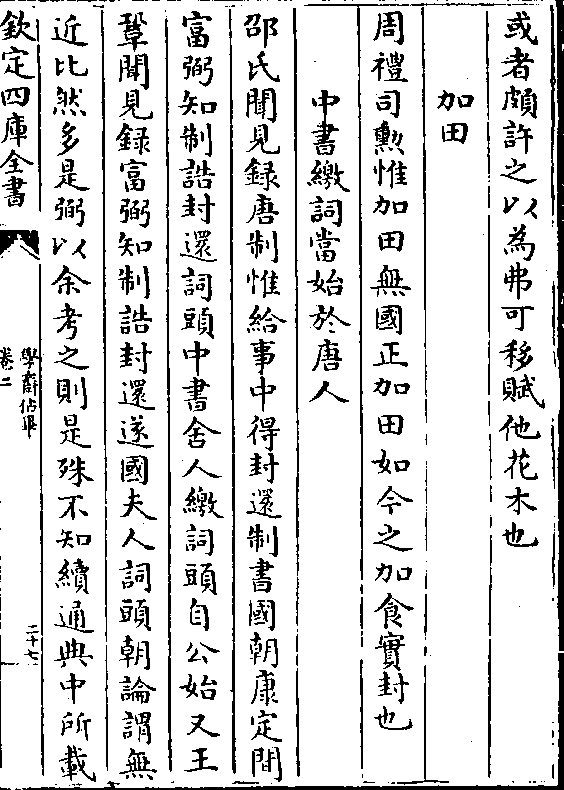 或者頗許之以為弗可移賦他花木也
加田
周禮司勲惟加田無國正加田如今之加食實封也
中書繳詞當始於唐人
邵氏聞見録唐制惟給事中得封還制書國朝康定間
富弼知制誥封還詞頭中書舍人繳詞頭自公始又王
鞏聞見録富弼知制誥封還遂國夫人詞頭朝論謂無
近比然多是弼以余考之則是殊不知續通典中所載
欽定四庫全書
學齋佔畢
卷二
二十七